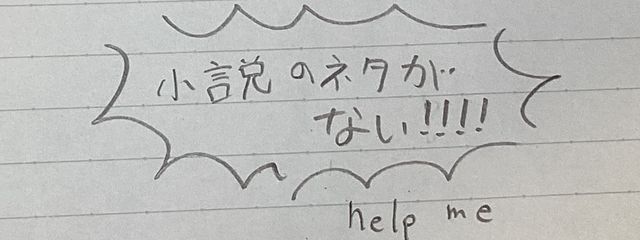 小説のネタが
ない!!!!
help me